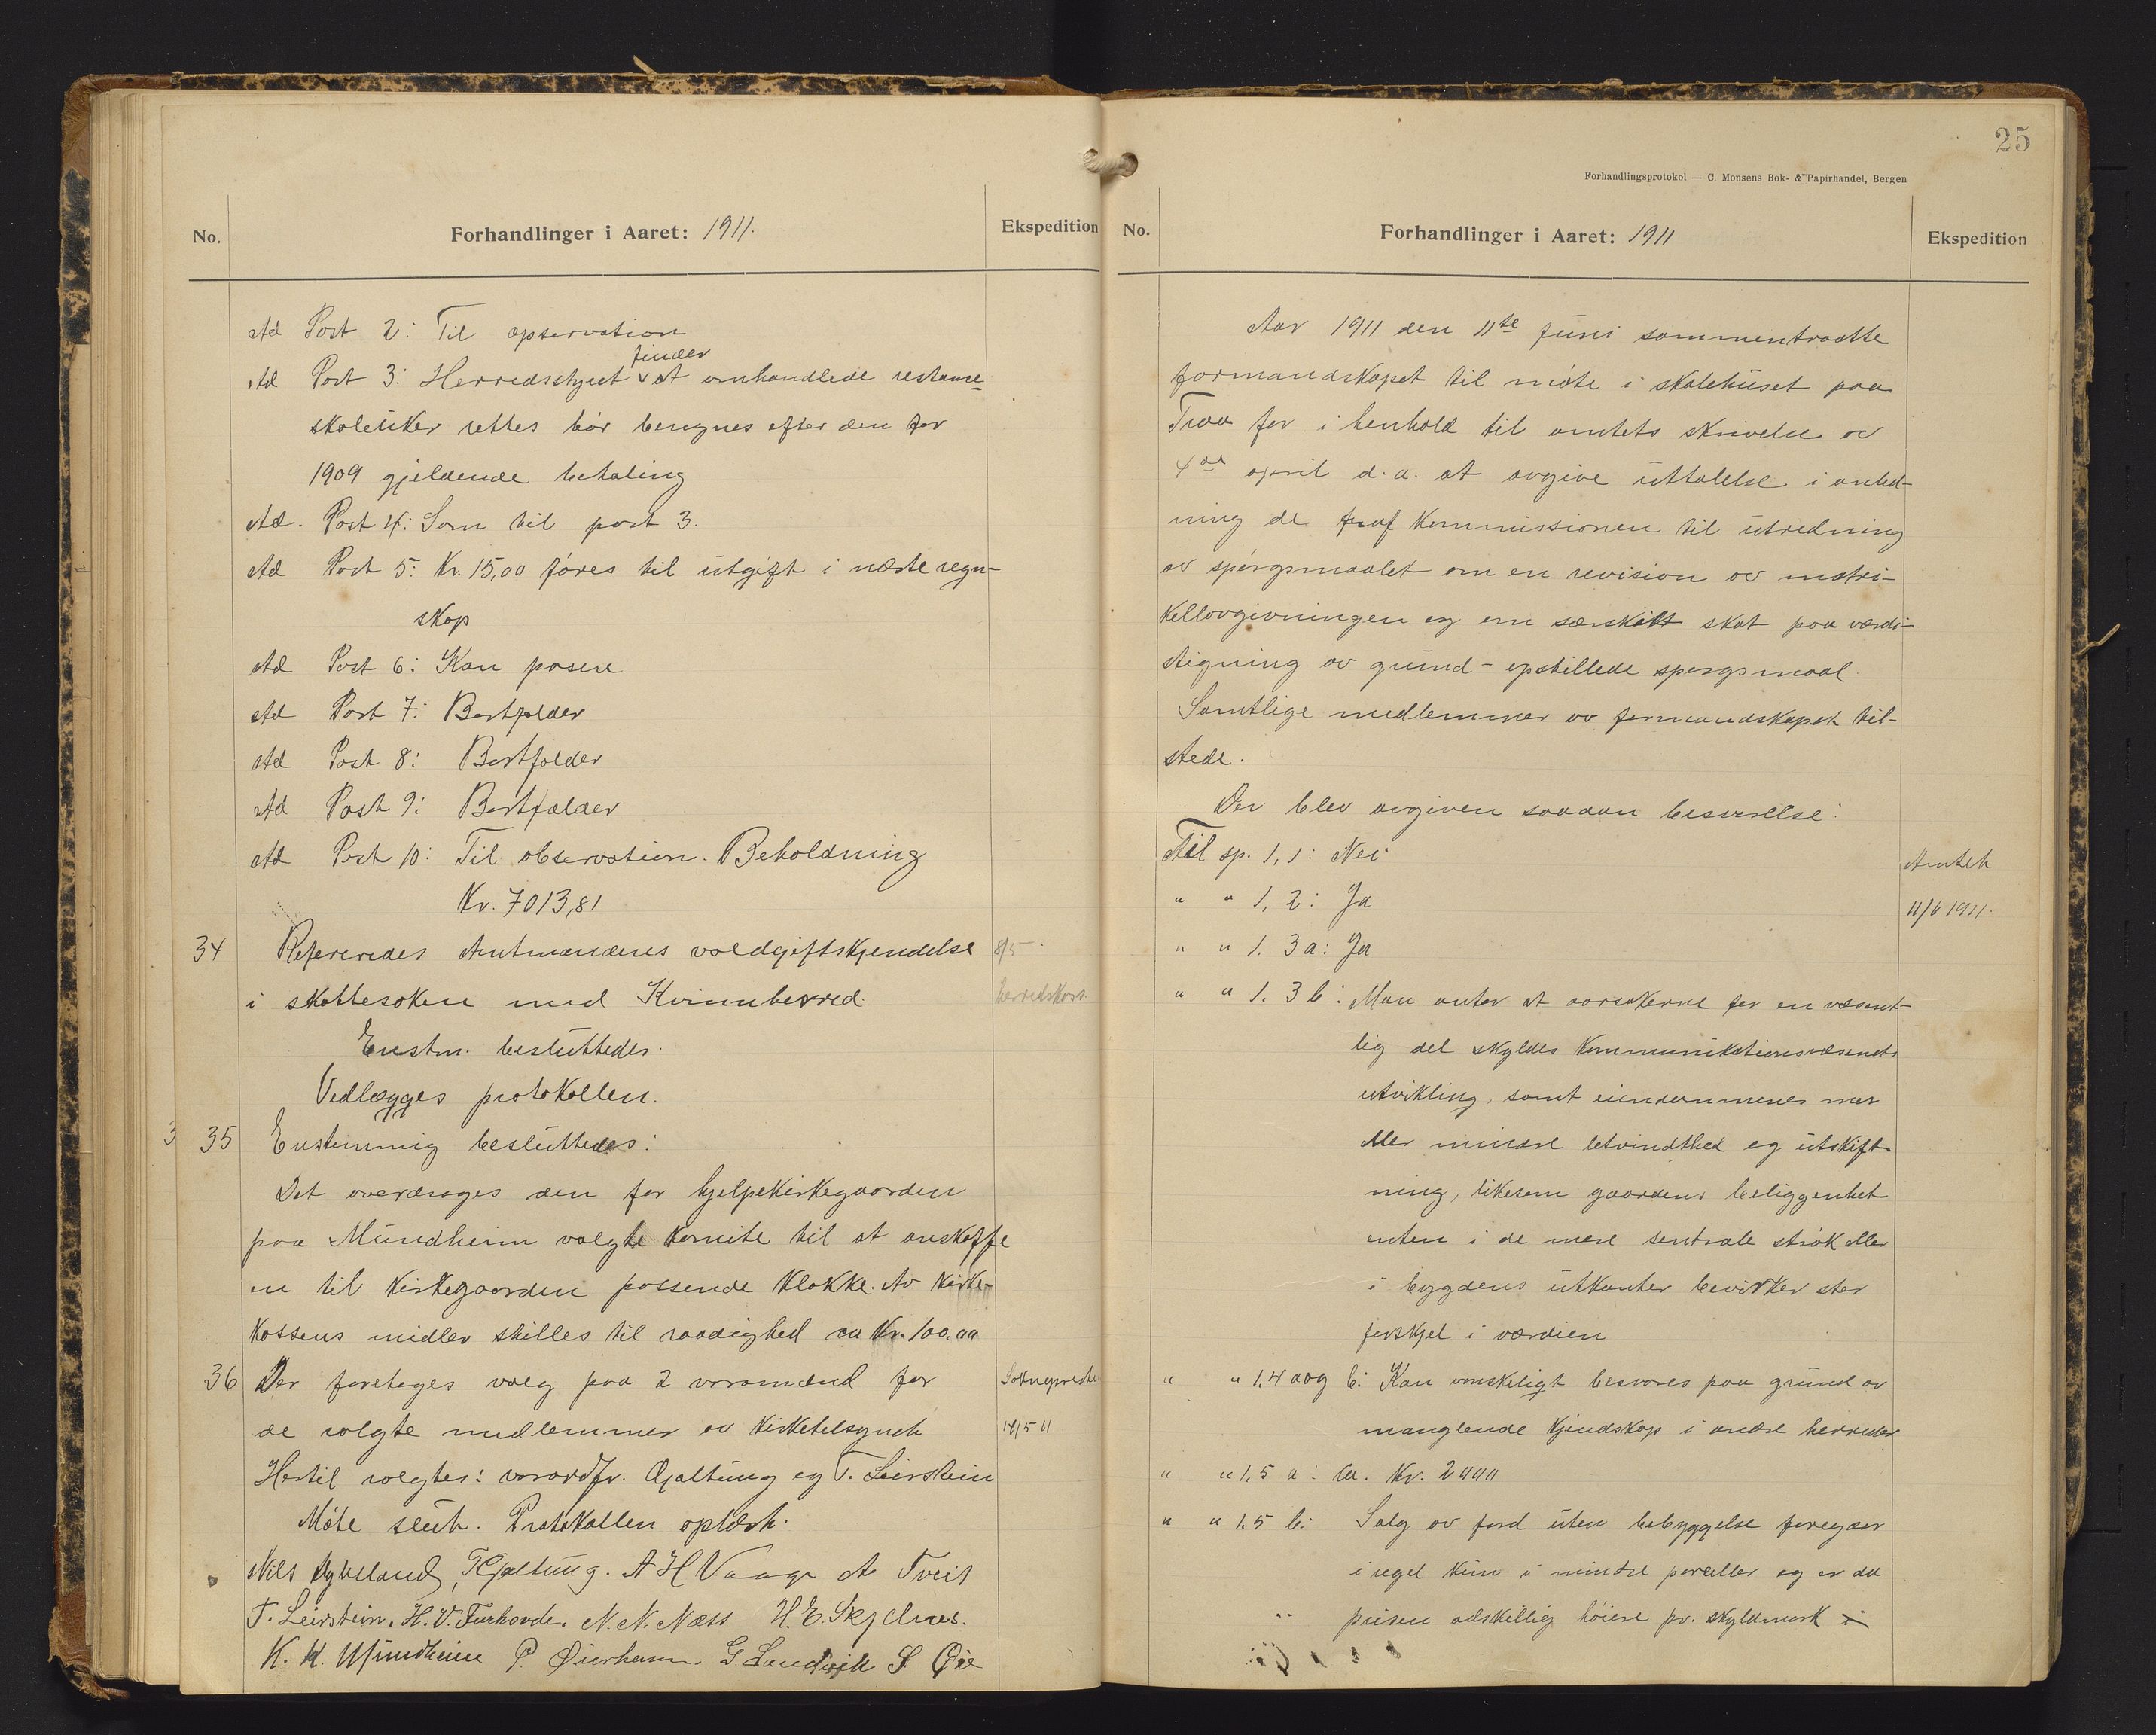 No.
Forhandlinger i Aaret: 1911.
Ekspedition
Ad Post 2: Til opservation
finder
Ad Post 3: Herredsstyret v at omhandlede restanse
skoleuker rettes bør beregnes efter den for
1909 gjeldende betaling
Ad. Post 4: Som til post 3.
Ad Post 5: Kr. 15,00 føres til utgift i næste regn-
skap
Ad Post 6: Kan pasere
Ad Post 7: Bortfalder
Ad Post 8: Bortfalder
Ad Post 9: Bortfalder
Ad Post 10: Til observation. Beholdning
Kr. 7013,81
34 Refereredes Amtmandens voldgiftskjendelse 8/5
i skattesaken med Kvinnherred. herredskass.
Enstm. besluttedes.
Vedlægges protokollen.
3 35 Enstemmig besluttedes:
Det overdrages den for hjelpekirkegaarden
paa Mundheim valgte komite til at anskaffe
en til kirkegaarden passende klokke. Av kirke-
kassens midler stilles til raadighed ca Kr. 100.00
36 Der foretages valg paa 2 varamænd for Sokneprest
de valgte medlemmer av kirketilsynet 14/5 11
Hertil valgtes: varaordfr. Gjaltung og T. Leirstein
Møte slut. Protokollen oplæst.
Nils Aghelland, T Gjaltung. A H Vaage A Tveit
T. Leirstein. H. V. Furhovde. N. N. Næss H. E. Skjelnes.
K. K. Mundheim P. Øierhamn. G. Sandvik S. Øie
25
Forhandlingsprotokol — C. Monsens Bok- & Papirhandel, Bergen
No.
Forhandlinger i Aaret: 1911
Ekspedition
Aar 1911 den 11te juni sammentraadte
formandskapet til møte i skolehuset paa
Traa for i henhold til amtets skrivelse av
4de april d.a. at avgive uttalelse i anled-
ning de af Kommissionen til utredning
av spørgsmaalet om en revision av matri-
kellovgivningen og om særskilt skat paa værdi-
stigning av grund - opstillede spørgsmaal.
Samtlige medlemmer av formandskapet til-
stede.
Der blev avgiven saadan besvarelse:
Til sp. 1,1: Nei
Amtet
" " 1, 2: Ja
11/6 1911.
" " 1. 3 a: Ja
" " 1. 3 b: Man antar at aarsakerne for en væsent-
lig del skyldes Kommunikationsvæsenets
utvikling, samt eiendommenes mer
eller mindre letvindthed og utskift-
ning, likesom gaardens beliggenhet
enten i de mere sentrale strøk eller
i bygdens utkanter bevirker stor
forskjel i værdien
" " 1,4 a og b: Kan vanskeligt besvares paa grund av
manglende kjendskap i andre herreder
" " 1,5 a: ca. Kr. 2000
" " 1.5 b: Salg av jord uten bebyggelse foregaar
i regel kun i mindre parceller og er da
prisen adskillig høiere pr. skyldmark i